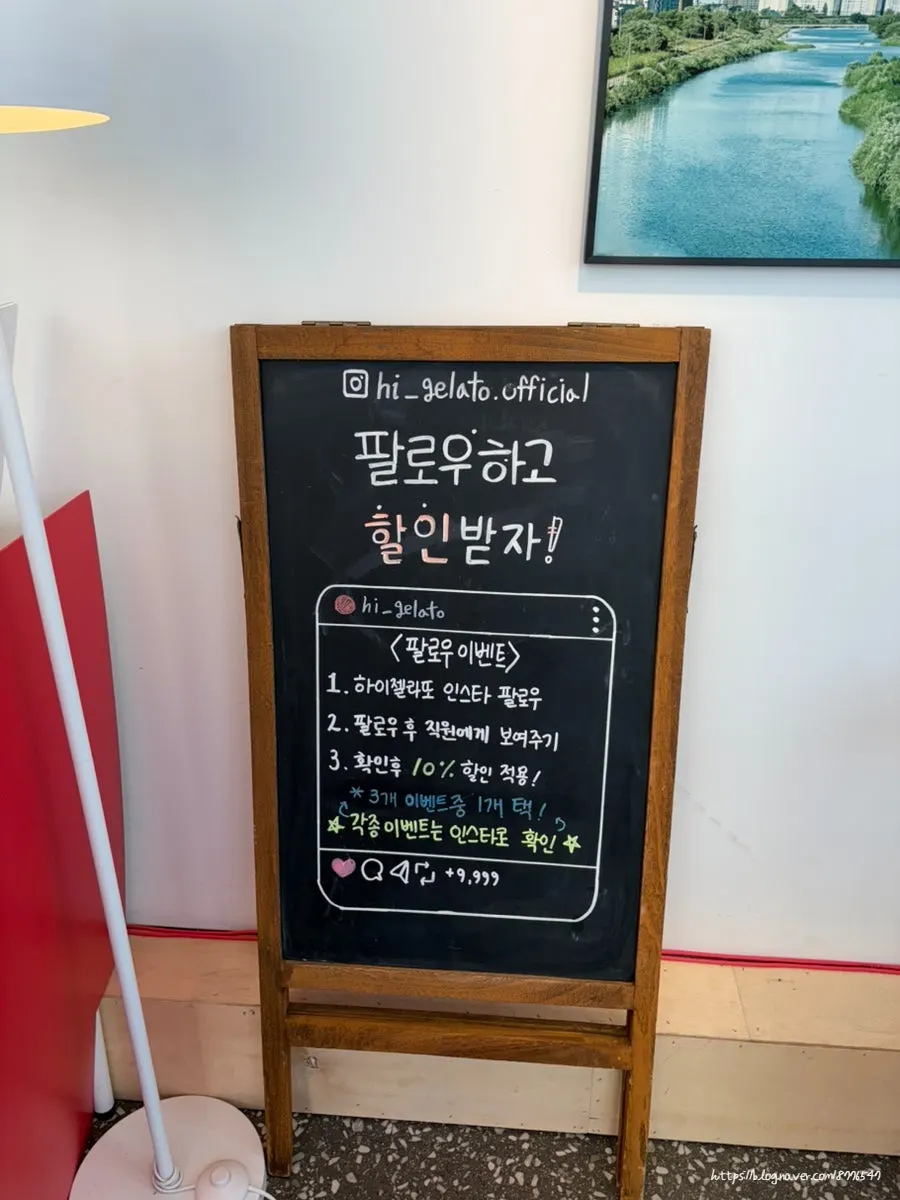 hi_gelato.official
팔로우하고
할인받자!
hi_gelato
<팔로우 이벤트>
1. 하이젤라또 인스타 팔로우
2. 팔로우 후 직원에게 보여주기
3. 확인후 10% 할인 적용!
* 3개 이벤트중 1개 택!
☆ 각종 이벤트는 인스타로 확인 ☆
+9,999